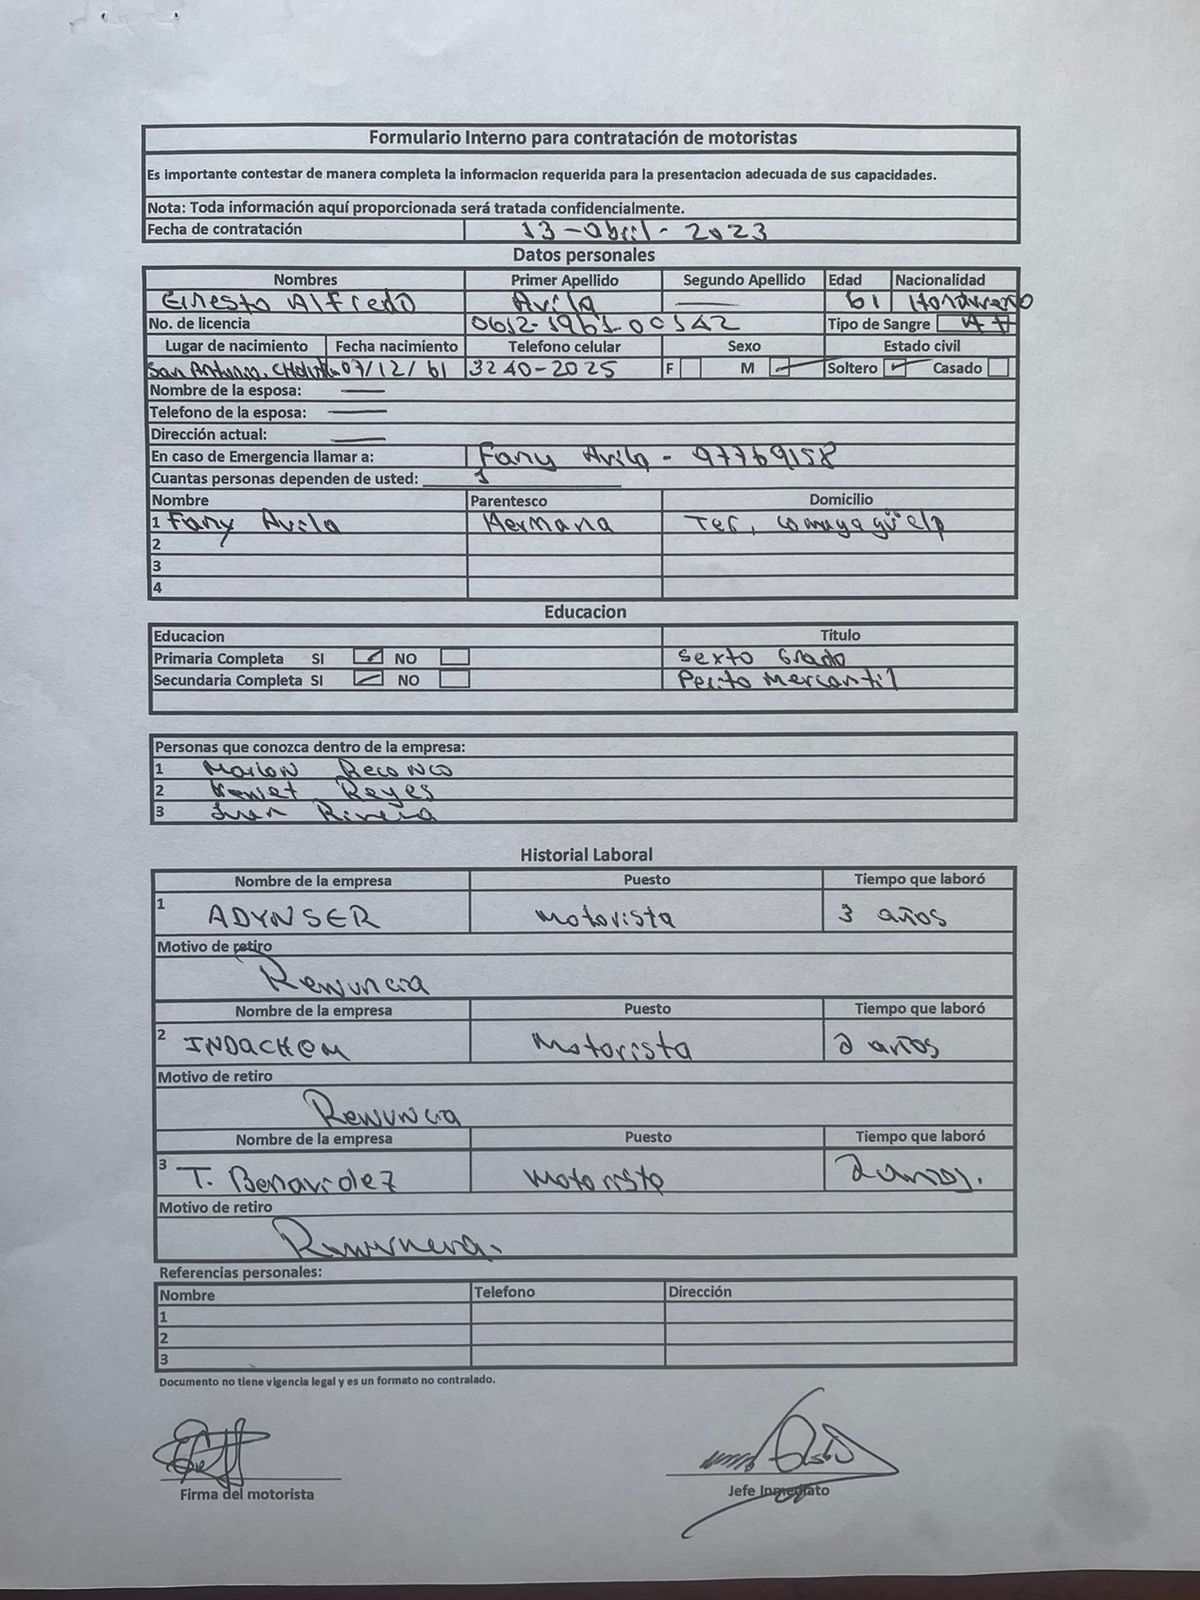 Formulario Interno para contratación de motoristas
Es importante contestar de manera completa la informacion requerida para la presentacion adecuada de sus capacidades.
Nota: Toda información aquí proporcionada será tratada confidencialmente.
Fecha de contratación 13-abril-2023
Datos personales
Nombres Primer Apellido Segundo Apellido Edad Nacionalidad
Ernesto Alfredo Avila 61 Hondureño
No. de licencia 0612-1961-00142 Tipo de Sangre
Lugar de nacimiento Fecha nacimiento Telefono celular Sexo Estado civil
San Antonio. 07/12/61 3240-2025 F M Soltero Casado
Nombre de la esposa:
Telefono de la esposa:
Dirección actual:
En caso de Emergencia llamar a: Fany Avila - 97769158
Cuantas personas dependen de usted: 1
Nombre Parentesco Domicilio
1 Fany Avila Hermana
2
3
4
Educacion
Educacion Titulo
Primaria Completa SI NO Sexto Grado
Secundaria Completa SI NO Perito Mercantil
Personas que conozca dentro de la empresa:
1 Marlon Reconco
2 Reyes
3 Juan Rivera
Historial Laboral
Nombre de la empresa Puesto Tiempo que laboró
1 ADYNSER Motorista 3 años
Motivo de retiro
Renuncia
Nombre de la empresa Puesto Tiempo que laboró
2 INDACHEM Motorista 2 años
Motivo de retiro
Renuncia
Nombre de la empresa Puesto Tiempo que laboró
3 T. Benavidez Motorista 2 años.
Motivo de retiro
Referencias personales:
Nombre Telefono Dirección
1
2
3
Documento no tiene vigencia legal y es un formato no contralado.
Firma del motorista Jefe Inmediato